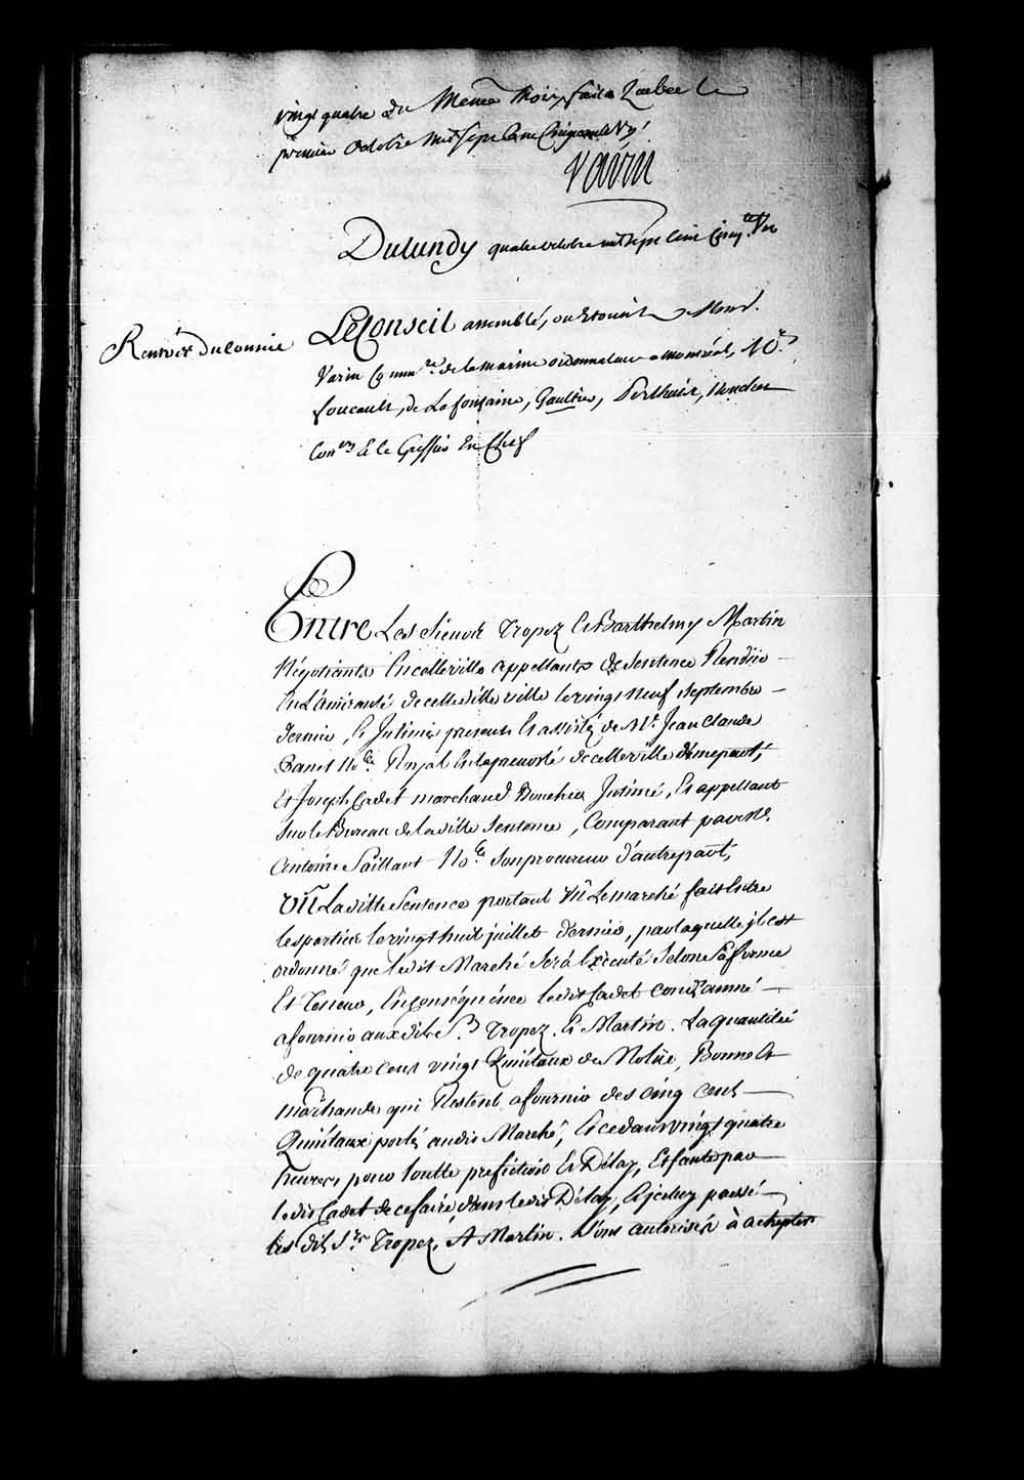 vingt quatre du Meme Mois, fait a Quebec le
premier Octobre mil sept Cent Cinquante Un
Varin
Du Lundy quatre octobre mil sept Cent Cinq.te Un
Le Conseil assemblé, ou Etoient Mons.r
Varin Comm.re de la marine ordonnateur a Montréal, M.rs
foucault, de Lafontaine, Gaultier, Perthuis,
Con.ers & le Greffier En Chef
Entre Les Sieurs Tropez & Barthelmy Martin
Négotiants En cette ville appellants de Sentence Rendüe
En L'amirauté de cette ville le vingt Neuf Septembre
dernier, & Intimés presents Et assistés de M.e Jean Claude
Panet No.re Royal En la prevosté de cette ville d'une part,
Et Joseph Cadet marchand Boucher Intimé, Et appellant
Sur le Bureau de la ditte Sentence, Comparant par M.e
Antoine Saillant No.re Son procureur d'autre part,
Vû La ditte Sentence portant Vû Le marché fait Entre
les parties le vingt huit juillet dernier, par laquelle il est
ordonné que ledit Marché Sera Executé Selon Sa forme
Et Teneur, En conséquence ledit Cadet condamné
a fournir aux dits S.rs Tropez & Martin La quantité
de quatre Cent vingt Quintaux de Moluë, Bonne Et
marchande qui Restent a fournir des cinq Cent
Quintaux portés audit Marché, & ce dans vingt quatre
heures pour toutte prefiction Et Délay, Et faute par
ledit Cadet de ce faire, dans ledit Délay, & iceluy passé
les dits S.rs Tropez, & Martin Sont autorisés à achepter